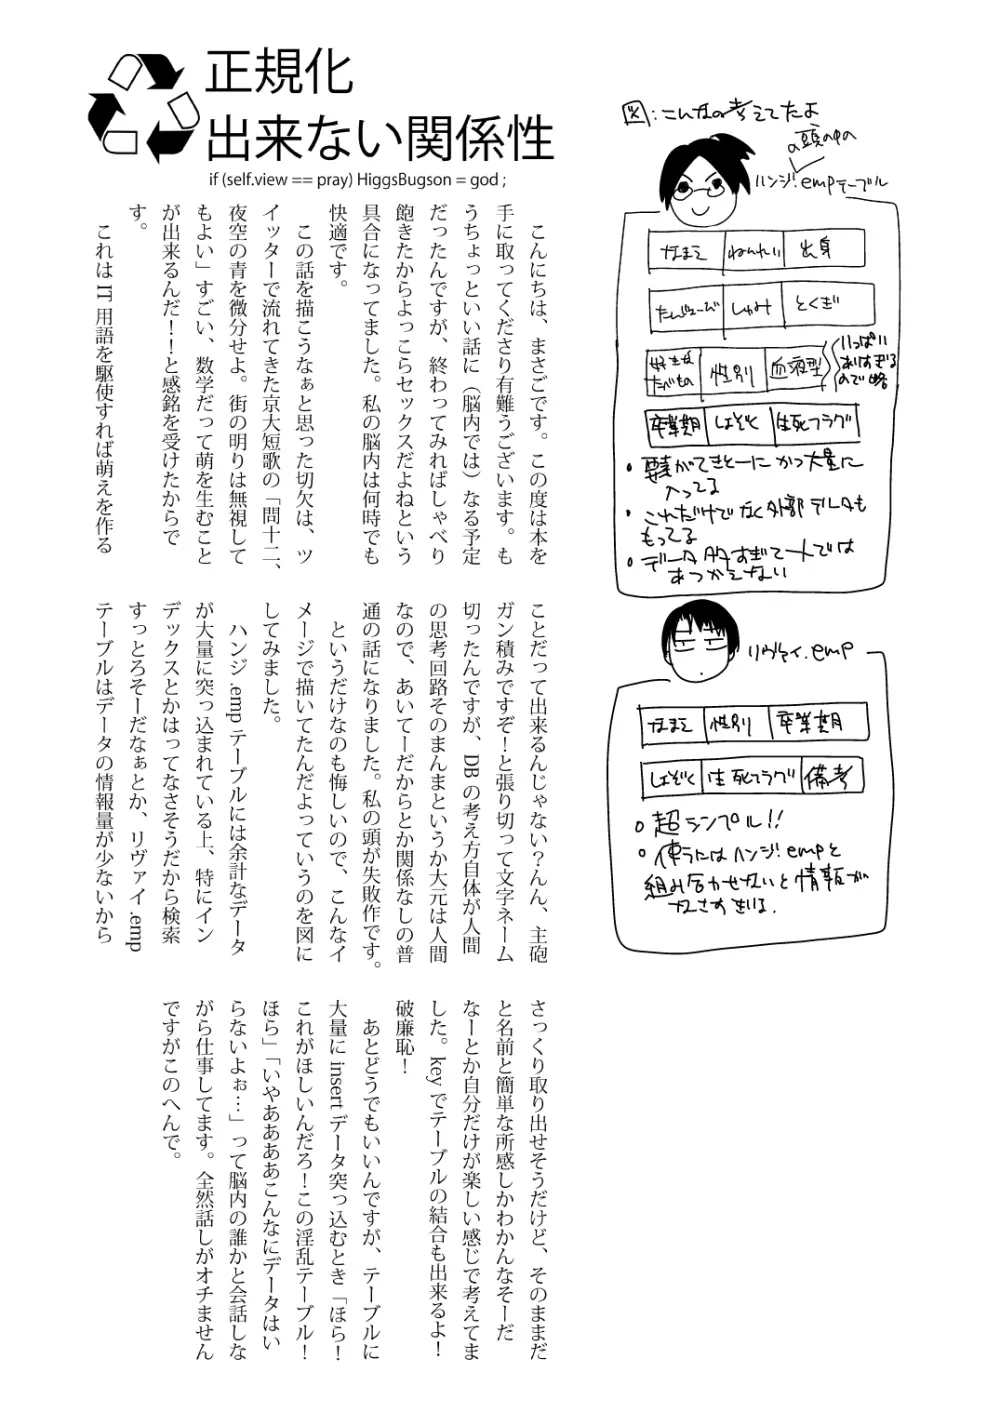 正規化
出来ない関係性
if (self.view == pray) HiggsBugson = god ;
こんにちは、まさごです。この度は本を
手に取ってくださり有難うございます。も
うちょっといい話に（脳内では）なる予定
だったんですが、終わってみればしゃべり
飽きたからよっこらセックスだよねという
具合になってました。私の脳内は何時でも
快適です。
この話を描こうなぁと思った切欠は、ツ
イッターで流れてきた京大短歌の「問十二、
夜空の青を微分せよ。街の明りは無視して
もよい」すごい、数学だって萌を生むこと
が出来るんだ！！と感銘を受けたからで
す。
これは IT 用語を駆使すれば萌えを作る
ことだって出来るんじゃない？んん、主砲
ガン積みですぞ！と張り切って文字ネーム
切ったんですが、DB の考え方自体が人間
の思考回路そのまんまというか大元は人間
なので、あいてーだからとか関係なしの普
通の話になりました。私の頭が失敗作です。
というだけなのも悔しいので、こんなイ
メージで描いてたんだよっていうのを図に
してみました。
ハンジ .emp テーブルには余計なデータ
が大量に突っ込まれている上、特にイン
デックスとかはってなさそうだから検索
すっとろそーだなぁとか、リヴァイ .emp
テーブルはデータの情報量が少ないから
さっくり取り出せそうだけど、そのままだ
と名前と簡単な所感しかわかんなそーだ
なーとか自分だけが楽しい感じで考えてま
した。key でテーブルの結合も出来るよ！
破廉恥！
あとどうでもいいんですが、テーブルに
大量に insert データ突っ込むとき「ほら！
これがほしいんだろ！この淫乱テーブル！
ほら」「いやああああこんなにデータはい
らないよぉ…」って脳内の誰かと会話しな
がら仕事してます。全然話しがオチません
ですがこのへんで。
図：こんなの考えてたよ
の頭の中の
ハンジ.empテーブル
なまえ ねんれい 出身
たんじょーび しゅみ とくぎ
好きな
たべもの
性別 血液型
いっぱい
ありすぎる
ので略
卒業期 しょぞく 生死フラグ
・要素がてきとーにかつ大量に
入ってる
・これだけでなく外部データも
もってる
・データ多すぎて一人では
あつかえない
リヴァイ.emp
なまえ 性別 卒業期
しょぞく 生死フラグ 備考
○ 超シンプル!!
○ 使うにはハンジ.empと
組み合わせないと情報が
なさすぎる.